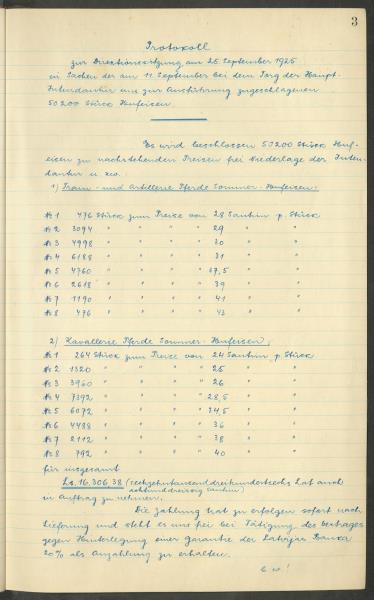 3
Protokoll
zur Direktionssitzung am 25. September 1925
in Sachen der am 11. September bei dem Torg der Haupt-
Intendantur uns zur Ausführung zugeschlagenen
50200 Stück Hufeisen.
Es wird beschlossen 50200 Stück Huf-
eisen zu nachstehenden Preisen frei Niederlage der Inten-
dantur u. zw.
1) Train- und Artillerie Pferde Sommer-Hufeisen.
№ 1 476 Stück zum Preise von 28 Santim p. Stück
№ 2 3094 " " " " 29 " "
№ 3 4998 " " " " 30 " "
№ 4 6188 " " " " 31 " "
№ 5 4760 " " " " 37,5 " "
№ 6 2618 " " " " 39 " "
№ 7 1190 " " " " 41 " "
№ 8 476 " " " " 43 " "
2) Kavallerie Pferde Sommer-Hufeisen,
№ 1 264 Stück zum Preise von 24 Santim p. Stück
№ 2 1320 " " " " 25 " "
№ 3 3960 " " " " 26 " "
№ 4 7392 " " " " 28,5 " "
№ 5 6072 " " " " 34,5 " "
№ 6 4488 " " " " 36 " "
№ 7 2112 " " " " 38 " "
№ 8 792 " " " " 40 " "
für insgesamt
Ls. 16.306.38 (sechzehntausenddreihundertsechs Lat und
achtunddreissig Santim)
in Auftrag zu nehmen.
Die Zahlung hat zu erfolgen sofort nach
Lieferung und steht es uns frei bei Tätigung des Vertrages
gegen Hinterlegung einer Garantie der Latvijas Banka
20% als Anzahlung zu erhalten.